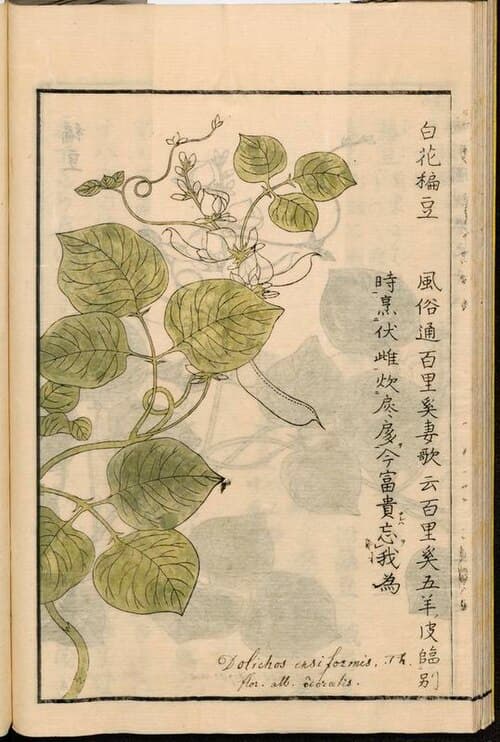 白花楄豆 風俗通百里奚妻歌云百里奚五羊皮臨別
時烹伏雌炊扊扅今富貴忘我為
Dolichos ensiformis. Th.
flor. alb. odoratis.